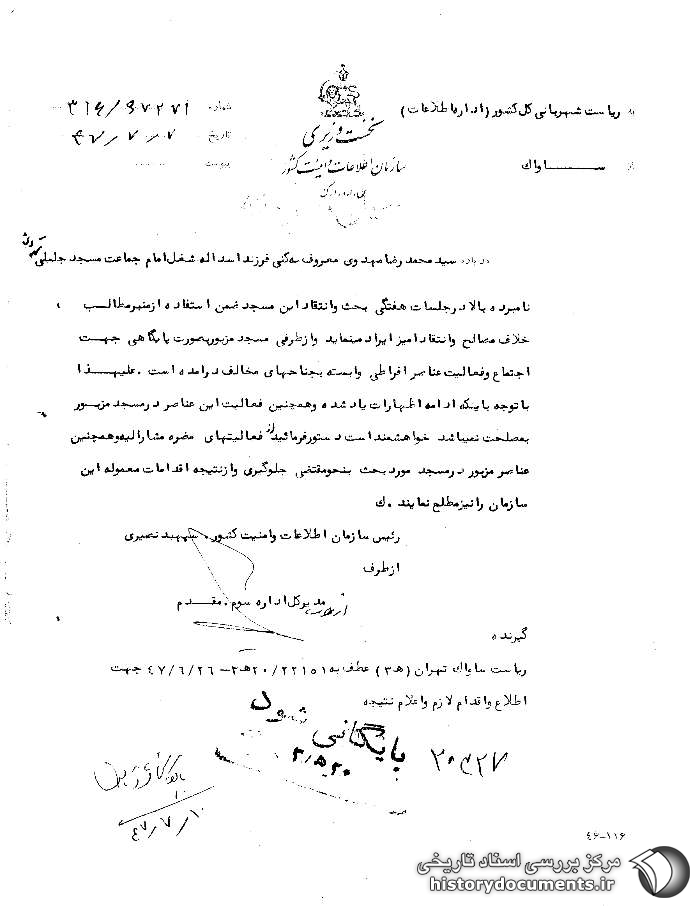 به ریاست شهربانی کل کشور (اداره اطلاعات)
نخست وزیری
شماره ۳۱۶/۳۷۲۷۱
تاریخ ۴۷/۷/۷
از ســـــــاواک
سازمان اطلاعات و امنیت کشور
پیوست
درباره سید محمد رضا مهدوی معروف به کنی فرزند اسداله شغل امام جماعت مسجد جلیلی تهران
نامبرده بالا در جلسات هفتگی بحث وانتقاد این مسجد ضمن استفاده از منبر مطالب
خلاف مصالح وانتقاد امیز ایراد مینماید وازطرفی مسجد مزبور بصورت پایگاهی جهت
اجتماع وفعالیت عناصر افراطی وابسته بجناحهای مخالف درامده است . علیهـــذا
با توجه باینکه ادامه اظهارات یاد شده وهمچنین فعالیت این عناصر در مسجد مزبـــور
بمصلحت نمیباشد خواهشمند است دستور فرمائید از فعالیتهای مضره مشارالیه وهمچنین
عناصر مزبور در مسجد مورد بحث بنحو مقتضی جلوگیری واز نتیجه اقدامات معموله این
سازمان را نیز مطلع نمایند . ک
رئیس سازمان اطلاعات وامنیت کشور . سپهبد نصیری
از طرف
مدیر کل اداره سوم . مقـــدم
گیرنده
ریاست ساواک تهران (ه۳) عطف به ۲۲۱۵۱/۲۰ه۳ – ۴۷/۶/۲۶ جهت
اطلاع واقدام لازم واعلام نتیجه
بایگانی شود
۴۷/۷/۱۰
۴۶-۱۱۶
مرکز بررسی اسناد تاریخی
historydocuments.ir